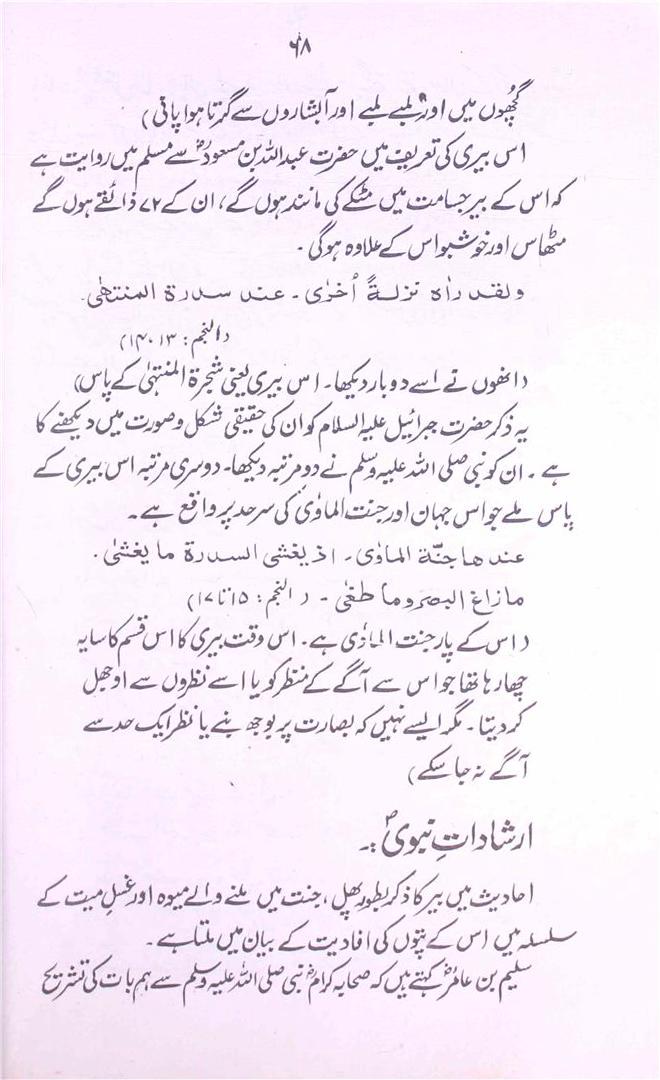 ۶۸
گچھوں میں اور لمبے لمبے اور آبشاروں سے گرتا ہوا پانی)
اس بیری کی تعریف میں حضرت عبداللہ بن مسعودؓ سے مسلم میں روایت ہے
کہ اس کے بیر جسامت میں مٹکے کی مانند ہوں گے، ان کے ۷۲ ذائقے ہوں گے
مٹھاس اور خوشبو اس کے علاوہ ہوگی۔
ولقد راٰہ نزلۃً اُخرٰی۔ عند سدرۃ المنتھٰی۔
(النجم: ۱۳، ۱۴)
(انھوں نے اسے دوبار دیکھا۔ اس بیری یعنی شجرۃ المنتہیٰ کے پاس)
یہ ذکر حضرت جبرائیل علیہ السلام کو ان کی حقیقی شکل و صورت میں دیکھنے کا
ہے۔ ان کو نبی صلی اللہ علیہ وسلم نے دو مرتبہ دیکھا۔ دوسری مرتبہ اس بیری کے
پاس ملے جو اس جہان اور جنت الماویٰ کی سرحد پر واقع ہے۔
عندھا جنّۃ الماوٰی۔ اذ یغشی السدرۃ ما یغشٰی۔
مازاغ البصر وما طغٰی۔ (النجم: ۱۵ تا ۱۷)
(اس کے پار جنت الماوٰی ہے۔ اس وقت بیری کا اس قسم کا سایہ
چھا رہا تھا جو اس سے آگے کے منظر کو یا اسے نظروں سے اوجھل
کر دیتا۔ مگر ایسے نہیں کہ بصارت پر بوجھ بنے یا نظر ایک حد سے
آگے نہ جا سکے)
ارشاداتِ نبویؐ :۔
احادیث میں بیر کا ذکر بطور پھل، جنت میں ملنے والے میوہ اور غسلِ میت کے
سلسلہ میں اس کے پتوں کی افادیت کے بیان میں ملتا ہے۔
سلیم بن عامرؓ کہتے ہیں کہ صحابہ کرامؓ نبی صلی اللہ علیہ وسلم سے ہم بات کی تشریح